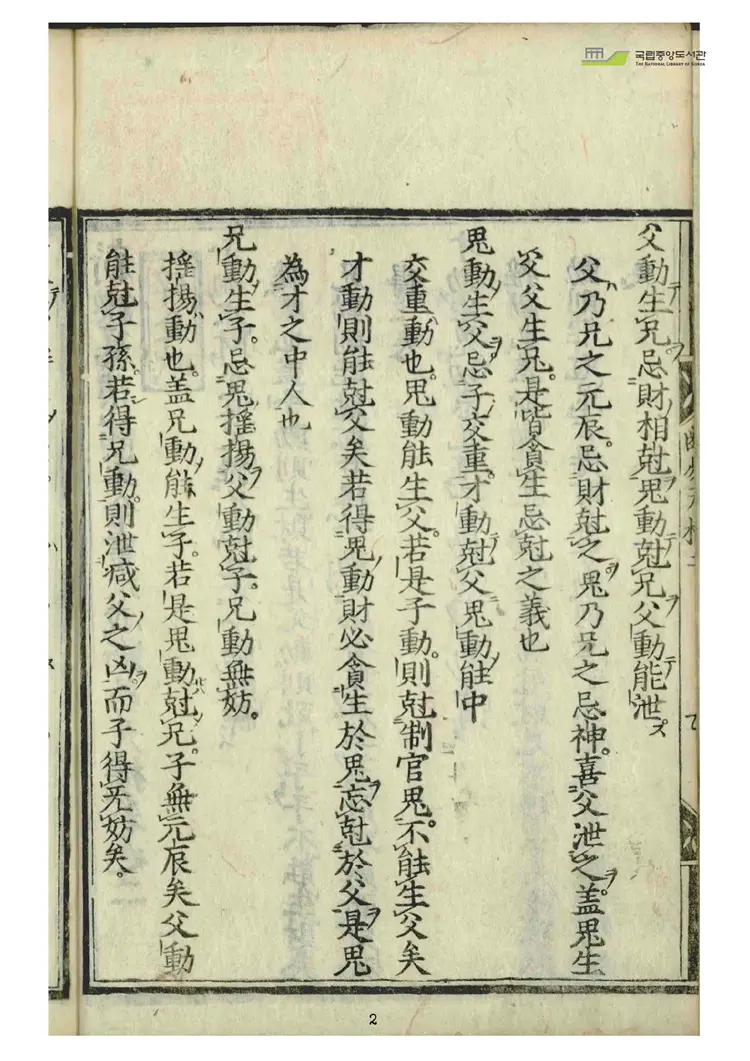 국립중앙도서관
THE NATIONAL LIBRARY OF KOREA
父動テ生レ兄ヲ忌財ノ相尅ヲ鬼動テ尅レ兄ヲ父動テ能泄ス
父乃兄之元辰忌財尅之鬼乃兄之忌神喜父泄之盖鬼生
父父生兄是皆貪生忌尅之義也
鬼動生父忌子交重才動尅父鬼動能中
交重動也鬼動能生父若是子動則尅制官鬼不能生父矣
才動則能尅父矣若得鬼動財必貪生於鬼忘尅於父是鬼
為才之中人也
兄動生子忌鬼揺揚父動尅子兄動無妨
揺揚動也盖兄動能生子若是鬼動尅兄子無元辰矣父動
能尅子孫若得兄動則泄减父之凶而子得无妨矣
2